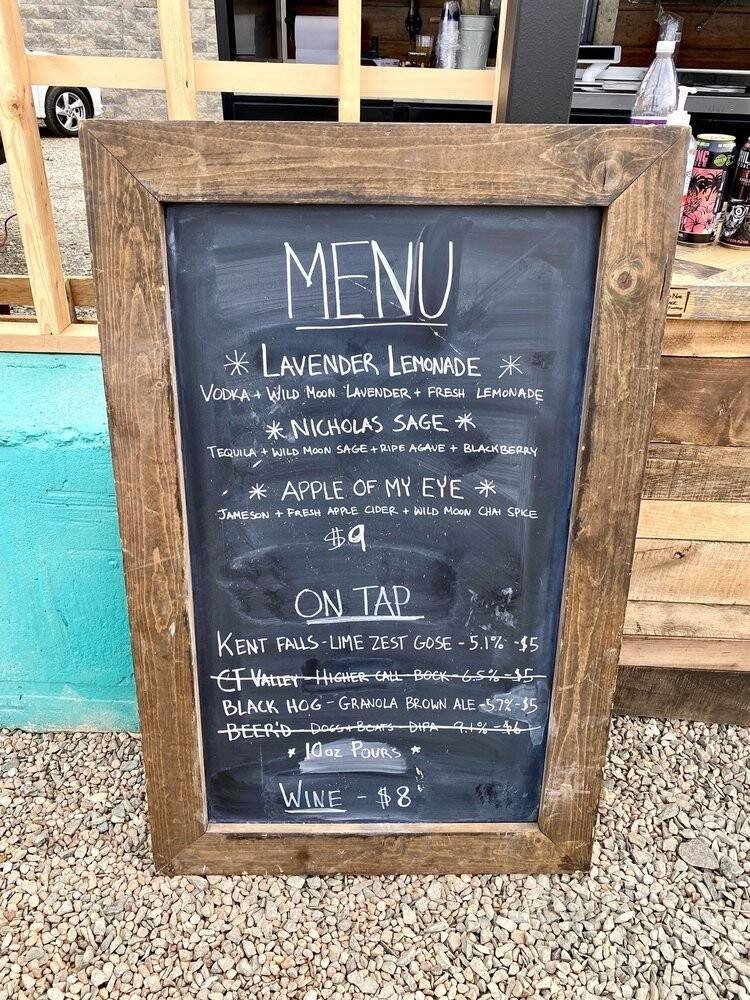 MENU
* LAVENDER LEMONADE *
VODKA + WILD MOON LAVENDER + FRESH LEMONADE
* NICHOLAS SAGE *
TEQUILA + WILD MOON SAGE + RIPE AGAVE + BLACKBERRY
* APPLE OF MY EYE *
JAMESON + FRESH APPLE CIDER + WILD MOON CHAI SPICE
$9
ON TAP
KENT FALLS - LIME ZEST GOSE - 5.1% - $5
CT VALLEY - HIGHER CALL BOCK - 6.5% - $5
BLACK HOG - GRANOLA BROWN ALE - 5.7% - $5
BEER'D DOGS + BOATS DIPA 9.1% - $6
* 10oz POURS *
WINE - $8